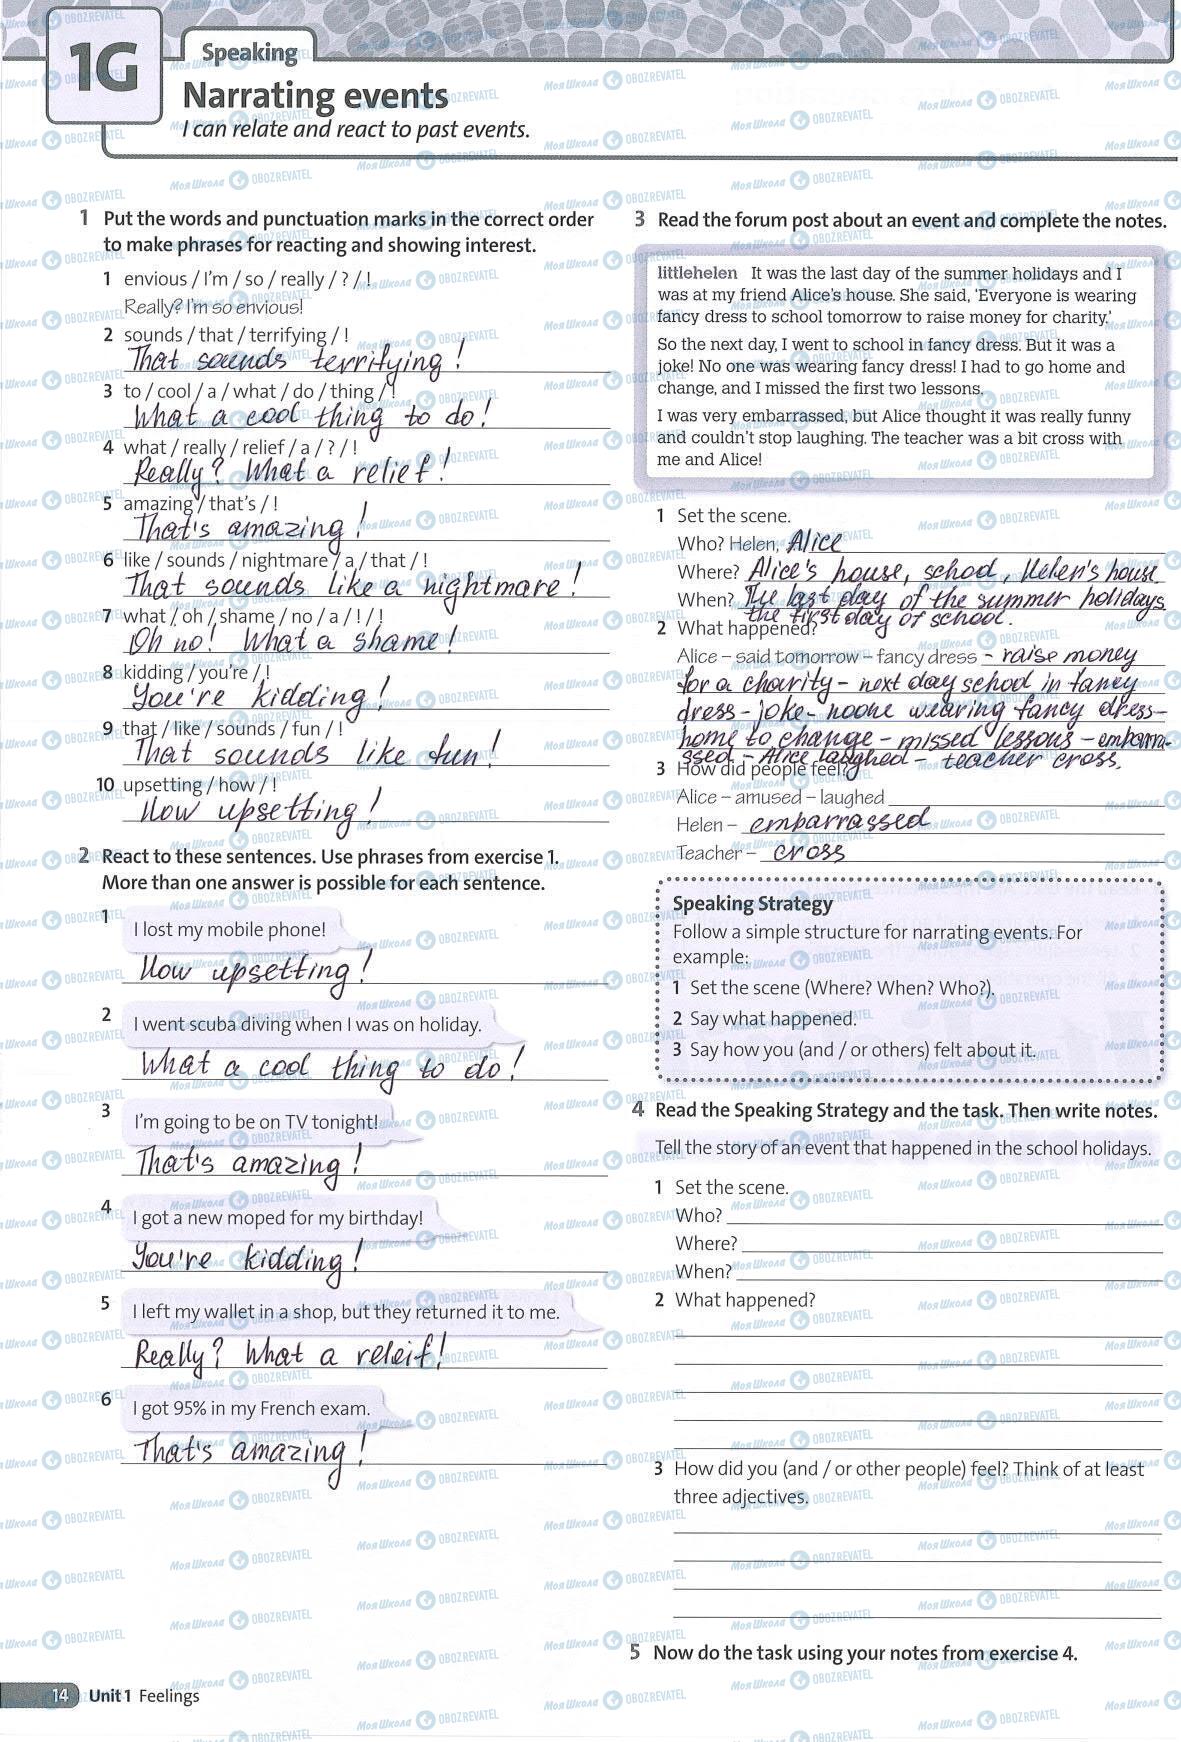 1G
Speaking
Narrating events
I can relate and react to past events.
1 Put the words and punctuation marks in the correct order
to make phrases for reacting and showing interest.
1 envious / I'm / so / really / ? / !
Really? I'm so envious!
2 sounds / that / terrifying / !
That sounds terrifying!
3 to / cool / a / what / do / thing / !
What a cool thing to do!
4 what / really / relief / a / ? / !
Really? What a relief!
5 amazing / that's / !
That's amazing!
6 like / sounds / nightmare / a / that / !
That sounds like a nightmare!
7 what / oh / shame / no / a / ! / !
Oh no! What a shame!
8 kidding / you're / !
You're kidding!
9 that / like / sounds / fun / !
That sounds like fun!
10 upsetting / how / !
How upsetting!
2 React to these sentences. Use phrases from exercise 1.
More than one answer is possible for each sentence.
1 I lost my mobile phone!
How upsetting!
2 I went scuba diving when I was on holiday.
What a cool thing to do!
3 I'm going to be on TV tonight!
That's amazing!
4 I got a new moped for my birthday!
You're kidding!
5 I left my wallet in a shop, but they returned it to me.
Really? What a releif!
6 I got 95% in my French exam.
That's amazing!
3 Read the forum post about an event and complete the notes.
littlehelen It was the last day of the summer holidays and I
was at my friend Alice's house. She said, 'Everyone is wearing
fancy dress to school tomorrow to raise money for charity.'
So the next day, I went to school in fancy dress. But it was a
joke! No one was wearing fancy dress! I had to go home and
change, and I missed the first two lessons.
I was very embarrassed, but Alice thought it was really funny
and couldn't stop laughing. The teacher was a bit cross with
me and Alice!
1 Set the scene.
Who? Helen, Alice
Where? Alice's house, school, Helen's house
When? The last day of the summer holidays
the first day of school.
2 What happened?
Alice – said tomorrow – fancy dress - raise money
for a charity - next day school in fancy
dress - joke - noone wearing fancy dress -
home to change - missed lessons - embarra-
ssed - Alice laughed - teacher cross.
3 How did people feel?
Alice – amused – laughed
Helen – embarrassed
Teacher – cross
Speaking Strategy
Follow a simple structure for narrating events. For
example:
1 Set the scene (Where? When? Who?).
2 Say what happened.
3 Say how you (and / or others) felt about it.
4 Read the Speaking Strategy and the task. Then write notes.
Tell the story of an event that happened in the school holidays.
1 Set the scene.
Who?
Where?
When?
2 What happened?
3 How did you (and / or other people) feel? Think of at least
three adjectives.
5 Now do the task using your notes from exercise 4.
14 Unit 1 Feelings
МояШкола OBOZREVATEL